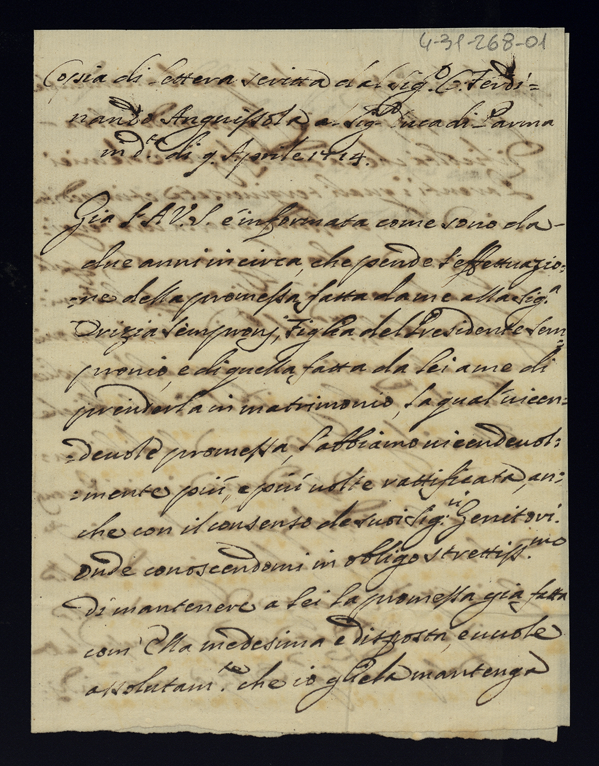 4-31-268-01
Copia di lettera scritta dal Sig.r C. Ferdi=
nando Anguissola al Sig.r Duca di Parma
in d.ta di 9 Aprile 1714.
Già l'A.V.S. è informata come sono da
due anni in circa, che pende l'effettuazio=
=ne della promessa fatta da me alla Sig.a
Orizia Sempronj, figlia del Presidente Sem
pronio, e di quella fatta da lei a me di
prenderla in matrimonio, la qual vicen=
=devole promessa, l'abbiamo vicendevol=
=mente più, e più volte rattificata, an=
che con il consenso de suoi Sig.ri Genitori.
Onde conoscendomi in obligo strettiss.mo
di mantenere a lei la promessa già fatta
com' Ella medesima è disposta, e vuole
assolutam.te che io gliela mantenga